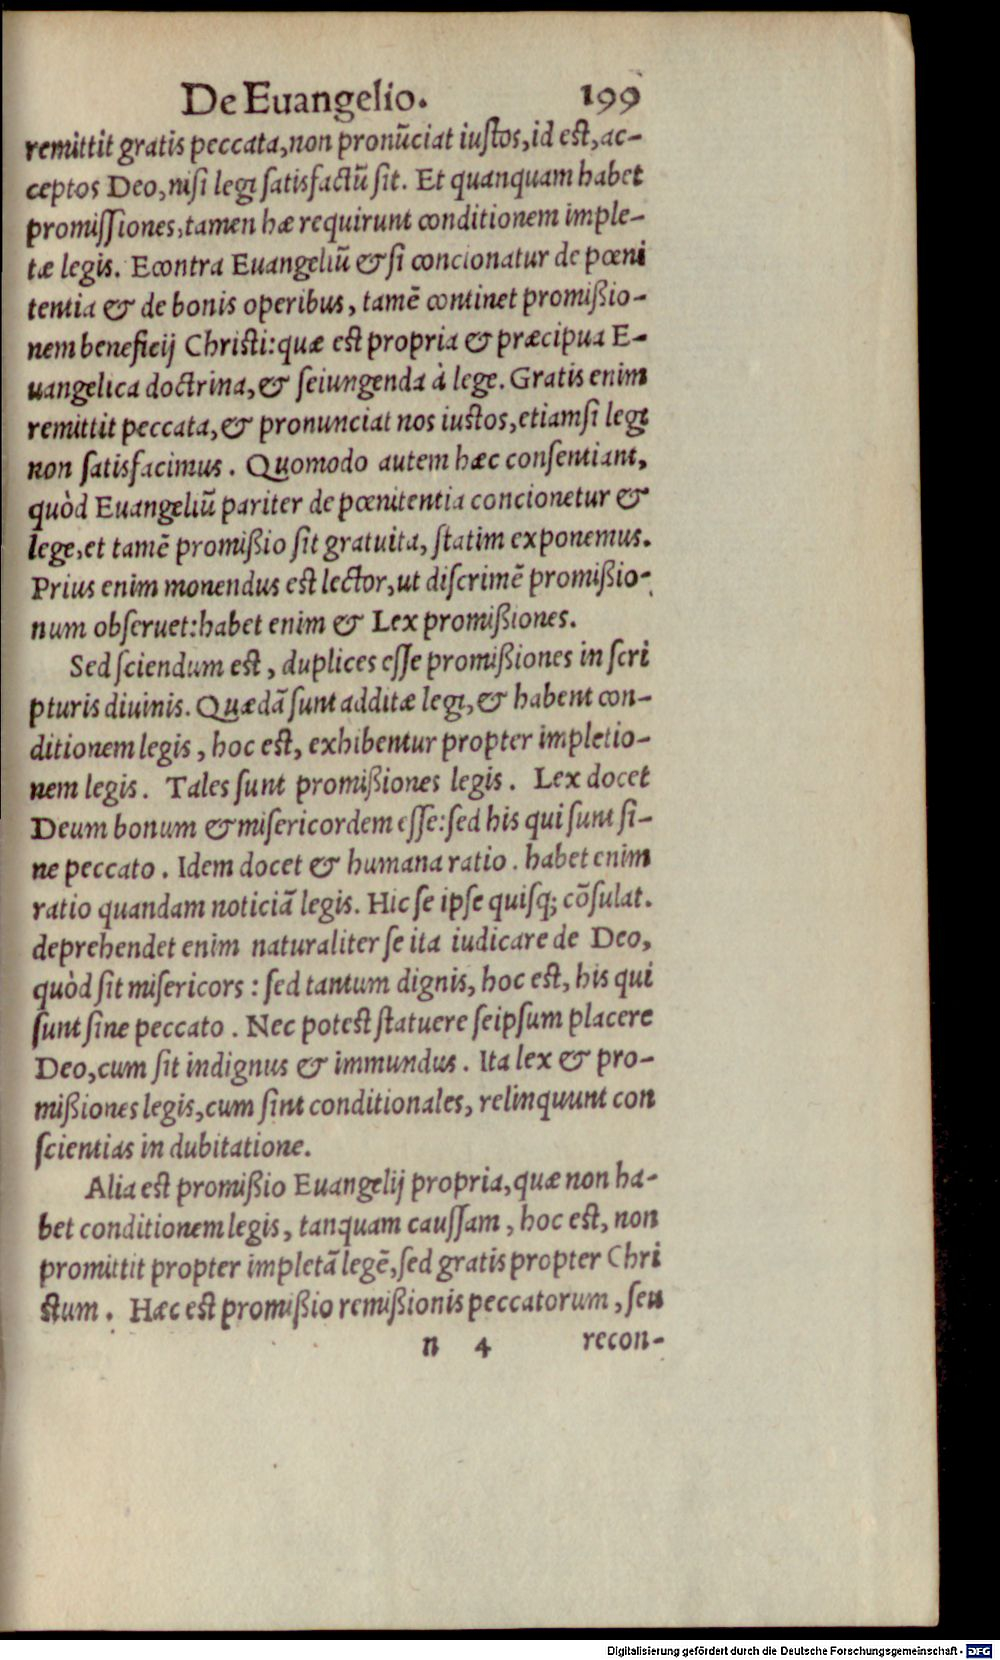 De Euangelio. 199
remittit gratis peccata, non pronũciat iuſtos, id est, ac-
ceptos Deo, niſi legi ſatisfactũ ſit. Et quanquam habet
promiſſiones, tamen hæ requirunt conditionem imple-
tæ legis. Econtra Euangeliũ & ſi concionatur de pœni
tentia & de bonis operibus, tamẽ continet promißio-
nem beneficij Christi: quæ est propria & præcipua E-
uangelica doctrina, & ſeiungenda à lege. Gratis enim
remittit peccata, & pronunciat nos iustos, etiamſi legi
non ſatisfacimus. Quomodo autem hæc conſentiant,
quòd Euangeliũ pariter de pœnitentia concionetur &
lege, et tamẽ promißio ſit gratuita, ſtatim exponemus.
Prius enim monendus est lector, ut diſcrimẽ promißio-
num obſeruet: habet enim & Lex promißiones.
Sed ſciendum est, duplices eſſe promißiones in ſcri
pturis diuinis. Quædã ſunt additæ legi, & habent con-
ditionem legis, hoc est, exhibentur propter impletio-
nem legis. Tales ſunt promißiones legis. Lex docet
Deum bonum & miſericordem eſſe: ſed his qui ſunt ſi-
ne peccato. Idem docet & humana ratio. habet enim
ratio quandam noticiã legis. Hic ſe ipſe quiſq; cõſulat.
deprehendet enim naturaliter ſe ita iudicare de Deo,
quòd ſit miſericors: ſed tantum dignis, hoc est, his qui
ſunt ſine peccato. Nec potest ſtatuere ſeipſum placere
Deo, cum ſit indignus & immundus. Ita lex & pro-
mißiones legis, cum ſint conditionales, relinquunt con
ſcientias in dubitatione.
Alia est promißio Euangelij propria, quæ non ha-
bet conditionem legis, tanquam cauſſam, hoc est, non
promittit propter impletã legẽ, ſed gratis propter Chri
stum. Hæc est promißio remißionis peccatorum, ſeu
n 4 recon-
Digitalisierung gefördert durch die Deutsche Forschungsgemeinschaft - DFG